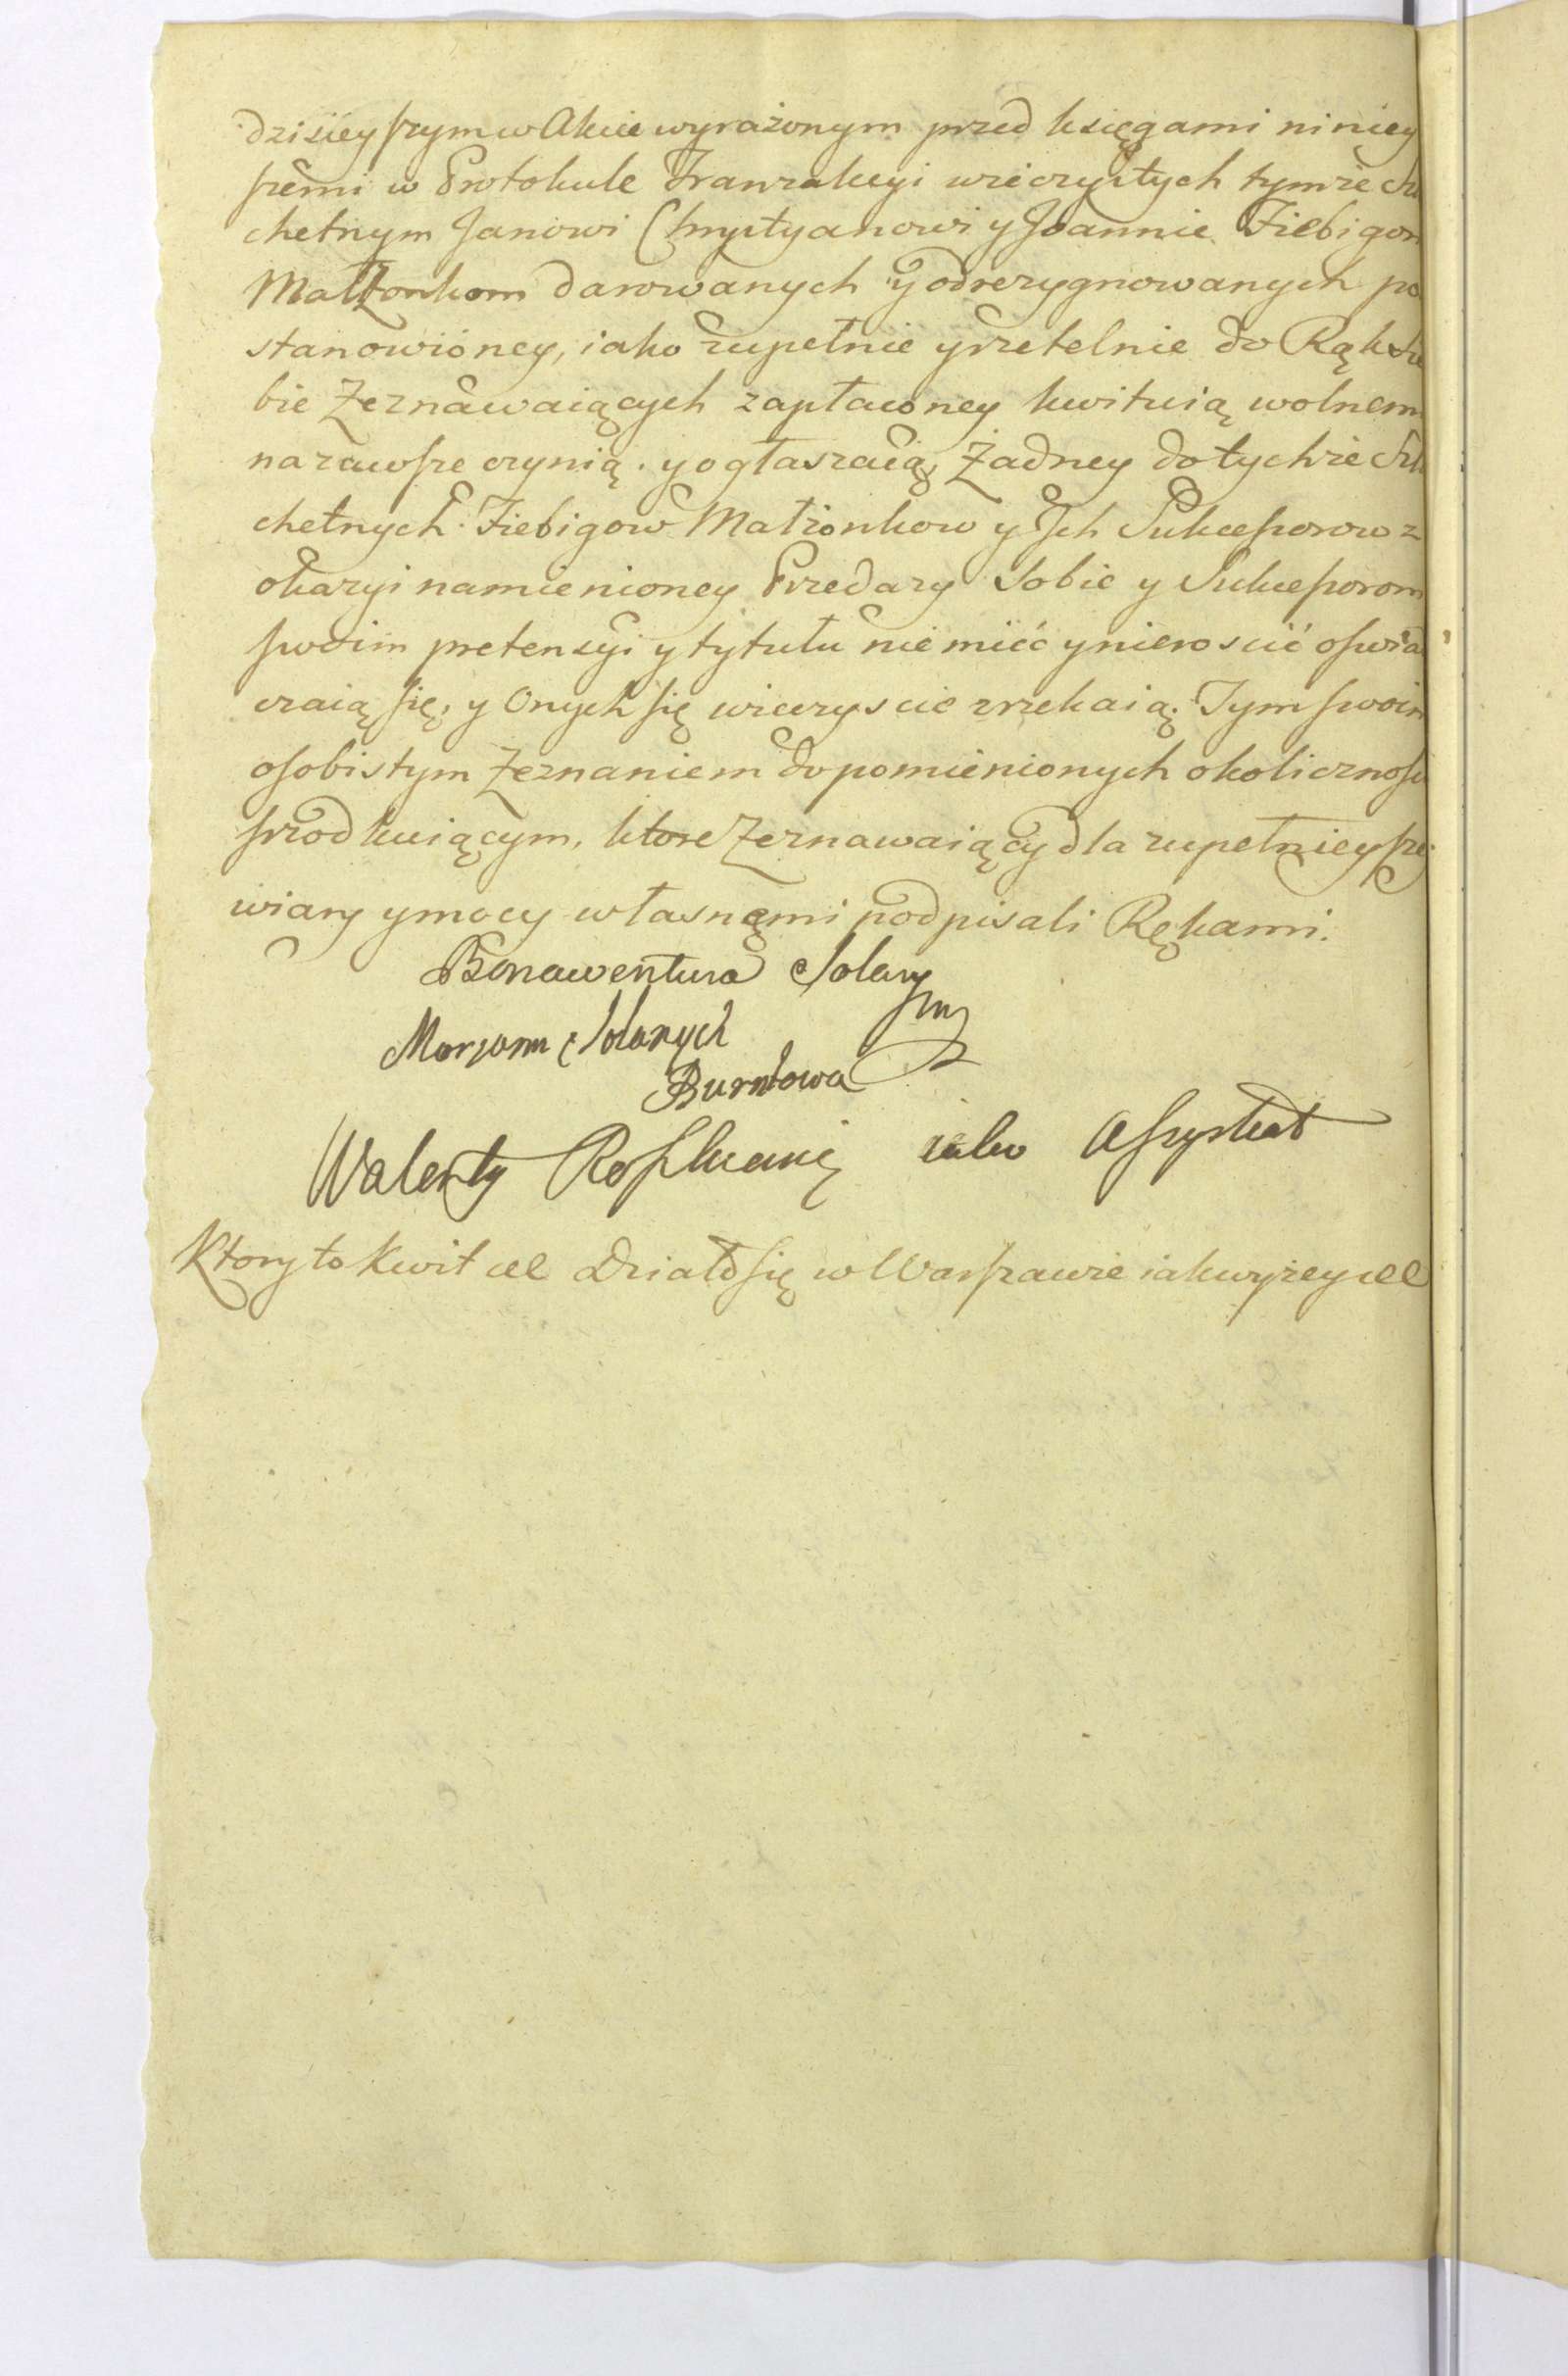 dzisieyszym w Akcie wyrażonym przed księgami niniey
szemi w Protokule Tranzakcyi wieczystych tymże Szla
chetnym Janowi Chrystyanowi y Joannie Fiebigom
Małżonkom darowanych y odrezygnowanych po
stanowioney, iako zupełnie y rzetelnie do Rąk Sie
bie Zeznawaiących zapłaconey kwituią wolnemi
na zawsze czynią. y ogłaszaią, Żadney do tychże Szla
chetnych Fiebigow Małżonkow y Ich Sukcessorow z
okazyi namienioney Przedazy Sobie y Sukcessorom
swoim pretensyi y tytułu nie mieć y nierościć oswiad
czaią się, y Onych się wieczyscie zrzekaią. Tym swoim
osobistym Zeznaniem do pomienionych okolicznosci
srzodkuiącym, ktore Zeznawaiący dla zupełnieyszey
wiary y mocy własnemi podpisali Rękami.
Bonawentura Solary
mp
Maryann z Solarych
Burntowa
Walenty iako Assystent
Ktory to Kwit etc Działo się w Warszawie iak wyżey etc